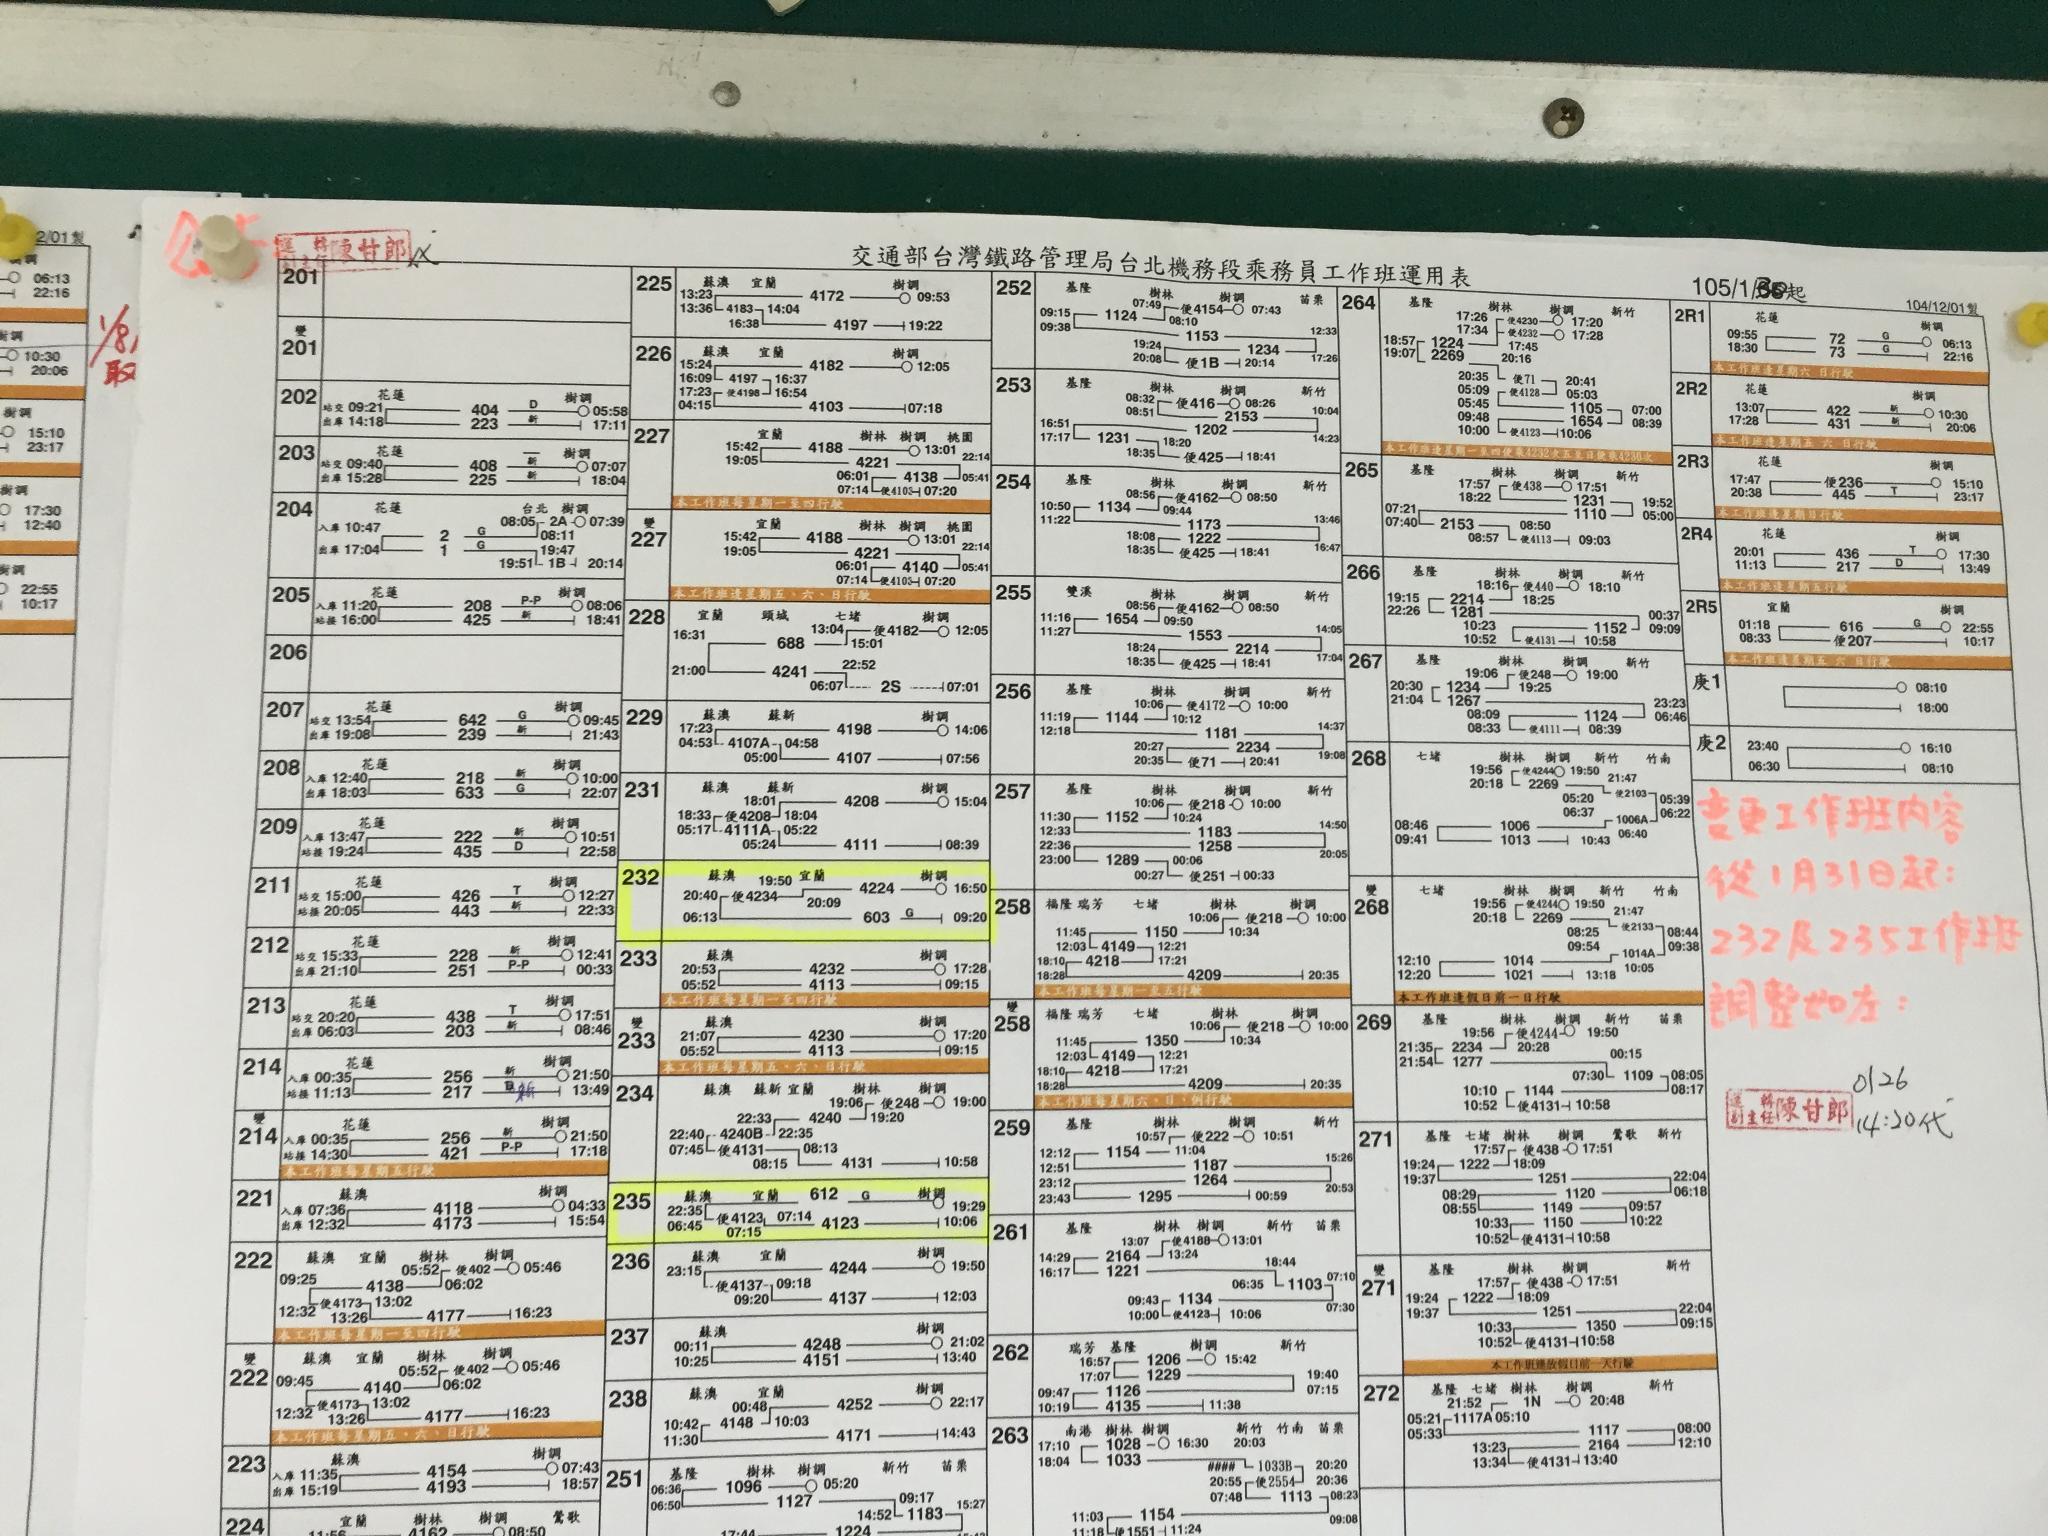 交通部台灣鐵路管理局台北機務段乘務員工作班運用表
105/1/
起
104/12/01製
運轉副主任 陳甘郎
2/01製
樹調
06:13
22:16
10:30
20:06
樹調
15:10
23:17
樹調
17:30
12:40
樹調
22:55
10:17
1/8,
取
201
變
201
202
花蓮 樹調
站交 09:21 404 D 05:58
出庫 14:18 223 新 17:11
203
花蓮 樹調
站交 09:40 408 新 07:07
出庫 15:28 225 新 18:04
204
花蓮 台北 樹調
08:05 2A 07:39
入庫 10:47 2 G 08:11
出庫 17:04 1 G 19:47
19:51 1B 20:14
205
花蓮 樹調
入庫 11:20 208 P-P 08:06
站接 16:00 425 新 18:41
206
207
花蓮 樹調
站交 13:54 642 G 09:45
出庫 19:08 239 新 21:43
208
花蓮 樹調
入庫 12:40 218 新 10:00
出庫 18:03 633 G 22:07
209
花蓮 樹調
入庫 13:47 222 新 10:51
站接 19:24 435 D 22:58
211
花蓮 樹調
站交 15:00 426 T 12:27
站接 20:05 443 新 22:33
212
花蓮 樹調
站交 15:33 228 新 12:41
出庫 21:10 251 P-P 00:33
213
花蓮 樹調
站交 20:20 438 T 17:51
出庫 06:03 203 新 08:46
214
花蓮 樹調
入庫 00:35 256 新 21:50
站接 11:13 217 新 13:49
變
214
花蓮 樹調
入庫 00:35 256 新 21:50
站接 14:30 421 P-P 17:18
本工作班每星期五行駛
221
蘇澳 樹調
入庫 07:36 4118 04:33
出庫 12:32 4173 15:54
222
蘇澳 宜蘭 樹林 樹調
05:52 便402 05:46
09:25 4138 06:02
12:32 便4173 13:02
13:26 4177 16:23
本工作班每星期一至四行駛
變
222
蘇澳 宜蘭 樹林 樹調
05:52 便402 05:46
09:45 4140 06:02
12:32 便4173 13:02
13:26 4177 16:23
本工作班每星期五、六、日行駛
223
蘇澳 樹調
入庫 11:35 4154 07:43
出庫 15:19 4193 18:57
224
宜蘭 樹林 樹調 鶯歌
11:56 4162 08:50
225
蘇澳 宜蘭 樹調
13:23 4172 09:53
13:36 4183 14:04
16:38 4197 19:22
226
蘇澳 宜蘭 樹調
15:24 4182 12:05
16:09 4197 16:37
17:23 便4198 16:54
04:15 4103 07:18
227
宜蘭 樹林 樹調 桃園
15:42 4188 13:01 22:14
19:05 4221
06:01 4138 05:41
07:14 便4103 07:20
本工作班每星期一至四行駛
變
227
宜蘭 樹林 樹調 桃園
15:42 4188 13:01 22:14
19:05 4221
06:01 4140 05:41
07:14 便4103 07:20
本工作班逢星期五、六、日行駛
228
宜蘭 頭城 七堵 樹調
13:04 便4182 12:05
16:31 688 15:01
21:00 4241 22:52
06:07 2S 07:01
229
蘇澳 蘇新 樹調
17:23 4198 14:06
04:53 4107A 04:58
05:00 4107 07:56
231
蘇澳 蘇新 樹調
18:01 4208 15:04
18:33 便4208 18:04
05:17 4111A 05:22
05:24 4111 08:39
232
蘇澳 19:50 宜蘭 樹調
4224 16:50
20:40 便4234 20:09
06:13 603 G 09:20
233
蘇澳 樹調
20:53 4232 17:28
05:52 4113 09:15
本工作班每星期一至四行駛
變
233
蘇澳 樹調
21:07 4230 17:20
05:52 4113 09:15
本工作班每星期五、六、日行駛
234
蘇澳 蘇新 宜蘭 樹林 樹調
19:06 便248 19:00
22:33 4240 19:20
22:40 4240B 22:35
07:45 便4131 08:13
08:15 4131 10:58
235
蘇澳 宜蘭 612 G 樹調
22:35 19:29
06:45 便4123 07:14 4123 10:06
07:15
236
蘇澳 宜蘭 樹調
23:15 4244 19:50
便4137 09:18
09:20 4137 12:03
237
蘇澳 樹調
00:11 4248 21:02
10:25 4151 13:40
238
蘇澳 宜蘭 樹調
00:48 4252 22:17
10:42 4148 10:03
11:30 4171 14:43
251
基隆 樹林 樹調 新竹 苗栗
06:36 1096 05:20
06:50 1127 09:17 15:27
14:52 1183
17:44 1224
252
基隆 樹林 樹調 苗栗
07:49 便4154 07:43
09:15 1124 08:10
09:38 1153 12:33
19:24 1234 17:26
20:08 便1B 20:14
253
基隆 樹林 樹調 新竹
08:32 便416 08:26
08:51 2153 10:04
16:51 1202 14:23
17:17 1231 18:20
18:35 便425 18:41
254
基隆 樹林 樹調 新竹
08:56 便4162 08:50
10:50 1134 09:44
11:22 1173 13:46
18:08 1222 16:47
18:35 便425 18:41
255
雙溪 樹林 樹調 新竹
08:56 便4162 08:50
11:16 1654 09:50
11:27 1553 14:05
18:24 2214 17:04
18:35 便425 18:41
256
基隆 樹林 樹調 新竹
10:06 便4172 10:00
11:19 1144 10:12
12:18 1181 14:37
20:27 2234 19:08
20:35 便71 20:41
257
基隆 樹林 樹調 新竹
10:06 便218 10:00
11:30 1152 10:24
12:33 1183 14:50
22:36 1258 20:05
23:00 1289 00:06
00:27 便251 00:33
258
福隆 瑞芳 七堵 樹林 樹調
10:06 便218 10:00
11:45 1150 10:34
12:03 4149 12:21
18:10 4218 17:21
18:28 4209 20:35
本工作班每星期一至五行駛
變
258
福隆 瑞芳 七堵 樹林 樹調
10:06 便218 10:00
11:45 1350 10:34
12:03 4149 12:21
18:10 4218 17:21
18:28 4209 20:35
本工作班每星期六、日、例行駛
259
基隆 樹林 樹調 新竹
10:57 便222 10:51
12:12 1154 11:04
12:51 1187 15:26
23:12 1264 20:53
23:43 1295 00:59
261
基隆 樹林 樹調 新竹 苗栗
13:07 便4188 13:01
14:29 2164 13:24
16:17 1221 18:44
06:35 1103 07:10
09:43 1134 07:30
10:00 便4123 10:06
262
瑞芳 基隆 樹調 新竹
16:57 1206 15:42
17:07 1229 19:40
09:47 1126 07:15
10:19 4135 11:38
263
南港 樹林 樹調 新竹 竹南 苗栗
17:10 1028 16:30 20:03
18:04 1033
#### 1033B 20:20
20:55 便2554 20:36
07:48 1113 08:23
11:03 1154 09:08
11:18 便1551 11:24
264
基隆 樹林 樹調 新竹
17:26 便4230 17:20
17:34 便4232 17:28
18:57 1224 17:45
19:07 2269 20:16
20:35 便71 20:41
05:09 便4128 05:03
05:45 1105 07:00
09:48 1654 08:39
10:00 便4123 10:06
本工作班逢星期一至四便乘4232次五至日便乘4230次
265
基隆 樹林 樹調 新竹
17:57 便438 17:51
18:22 1231 19:52
07:21 1110 05:00
07:40 2153 08:50
08:57 便4113 09:03
266
基隆 樹林 樹調 新竹
18:16 便440 18:10
19:15 2214 18:25
22:26 1281 00:37
10:23 1152 09:09
10:52 便4131 10:58
267
基隆 樹林 樹調 新竹
19:06 便248 19:00
20:30 1234 19:25
21:04 1267 23:23
08:09 1124 06:46
08:33 便4111 08:39
268
七堵 樹林 樹調 新竹 竹南
19:56 便4244 19:50
20:18 2269 21:47
05:20 便2103 05:39
06:37 1006A 06:22
08:46 1006 06:40
09:41 1013 10:43
變
268
七堵 樹林 樹調 新竹 竹南
19:56 便4244 19:50
20:18 2269 21:47
08:25 便2133 08:44
09:54 1014A 09:38
12:10 1014 10:05
12:20 1021 13:18
本工作班逢假日前一日行駛
269
基隆 樹林 樹調 新竹 苗栗
19:56 便4244 19:50
21:35 2234 20:28
21:54 1277 00:15
07:30 1109 08:05
10:10 1144 08:17
10:52 便4131 10:58
271
基隆 七堵 樹林 樹調 鶯歌 新竹
17:57 便438 17:51
19:24 1222 18:09
19:37 1251 22:04
08:29 1120 06:18
08:55 1149 09:57
10:33 1150 10:22
10:52 便4131 10:58
變
271
基隆 樹林 樹調 新竹
17:57 便438 17:51
19:24 1222 18:09
19:37 1251 22:04
10:33 1350 09:15
10:52 便4131 10:58
272
基隆 七堵 樹林 樹調 新竹
21:52 1N 20:48
05:21 1117A 05:10
05:33 1117 08:00
13:23 2164 12:10
13:34 便4131 13:40
2R1
花蓮 樹調
09:55 72 G 06:13
18:30 73 G 22:16
本工作班逢星期六 日行駛
2R2
花蓮 樹調
13:07 422 新 10:30
17:28 431 新 20:06
本工作班逢星期五 六 日行駛
2R3
花蓮 樹調
17:47 便236 15:10
20:38 445 T 23:17
本工作班逢星期日行駛
2R4
花蓮 樹調
20:01 436 T 17:30
11:13 217 D 13:49
本工作班逢星期五行駛
2R5
宜蘭 樹調
01:18 616 G 22:55
08:33 便207 10:17
本工作班逢星期五 六 日行駛
庚1
08:10
18:00
庚2
23:40 16:10
06:30 08:10
變更工作班內容
從1月31日起:
232及235工作班
調整如左:
運轉副主任 陳甘郎
0126
14:20代